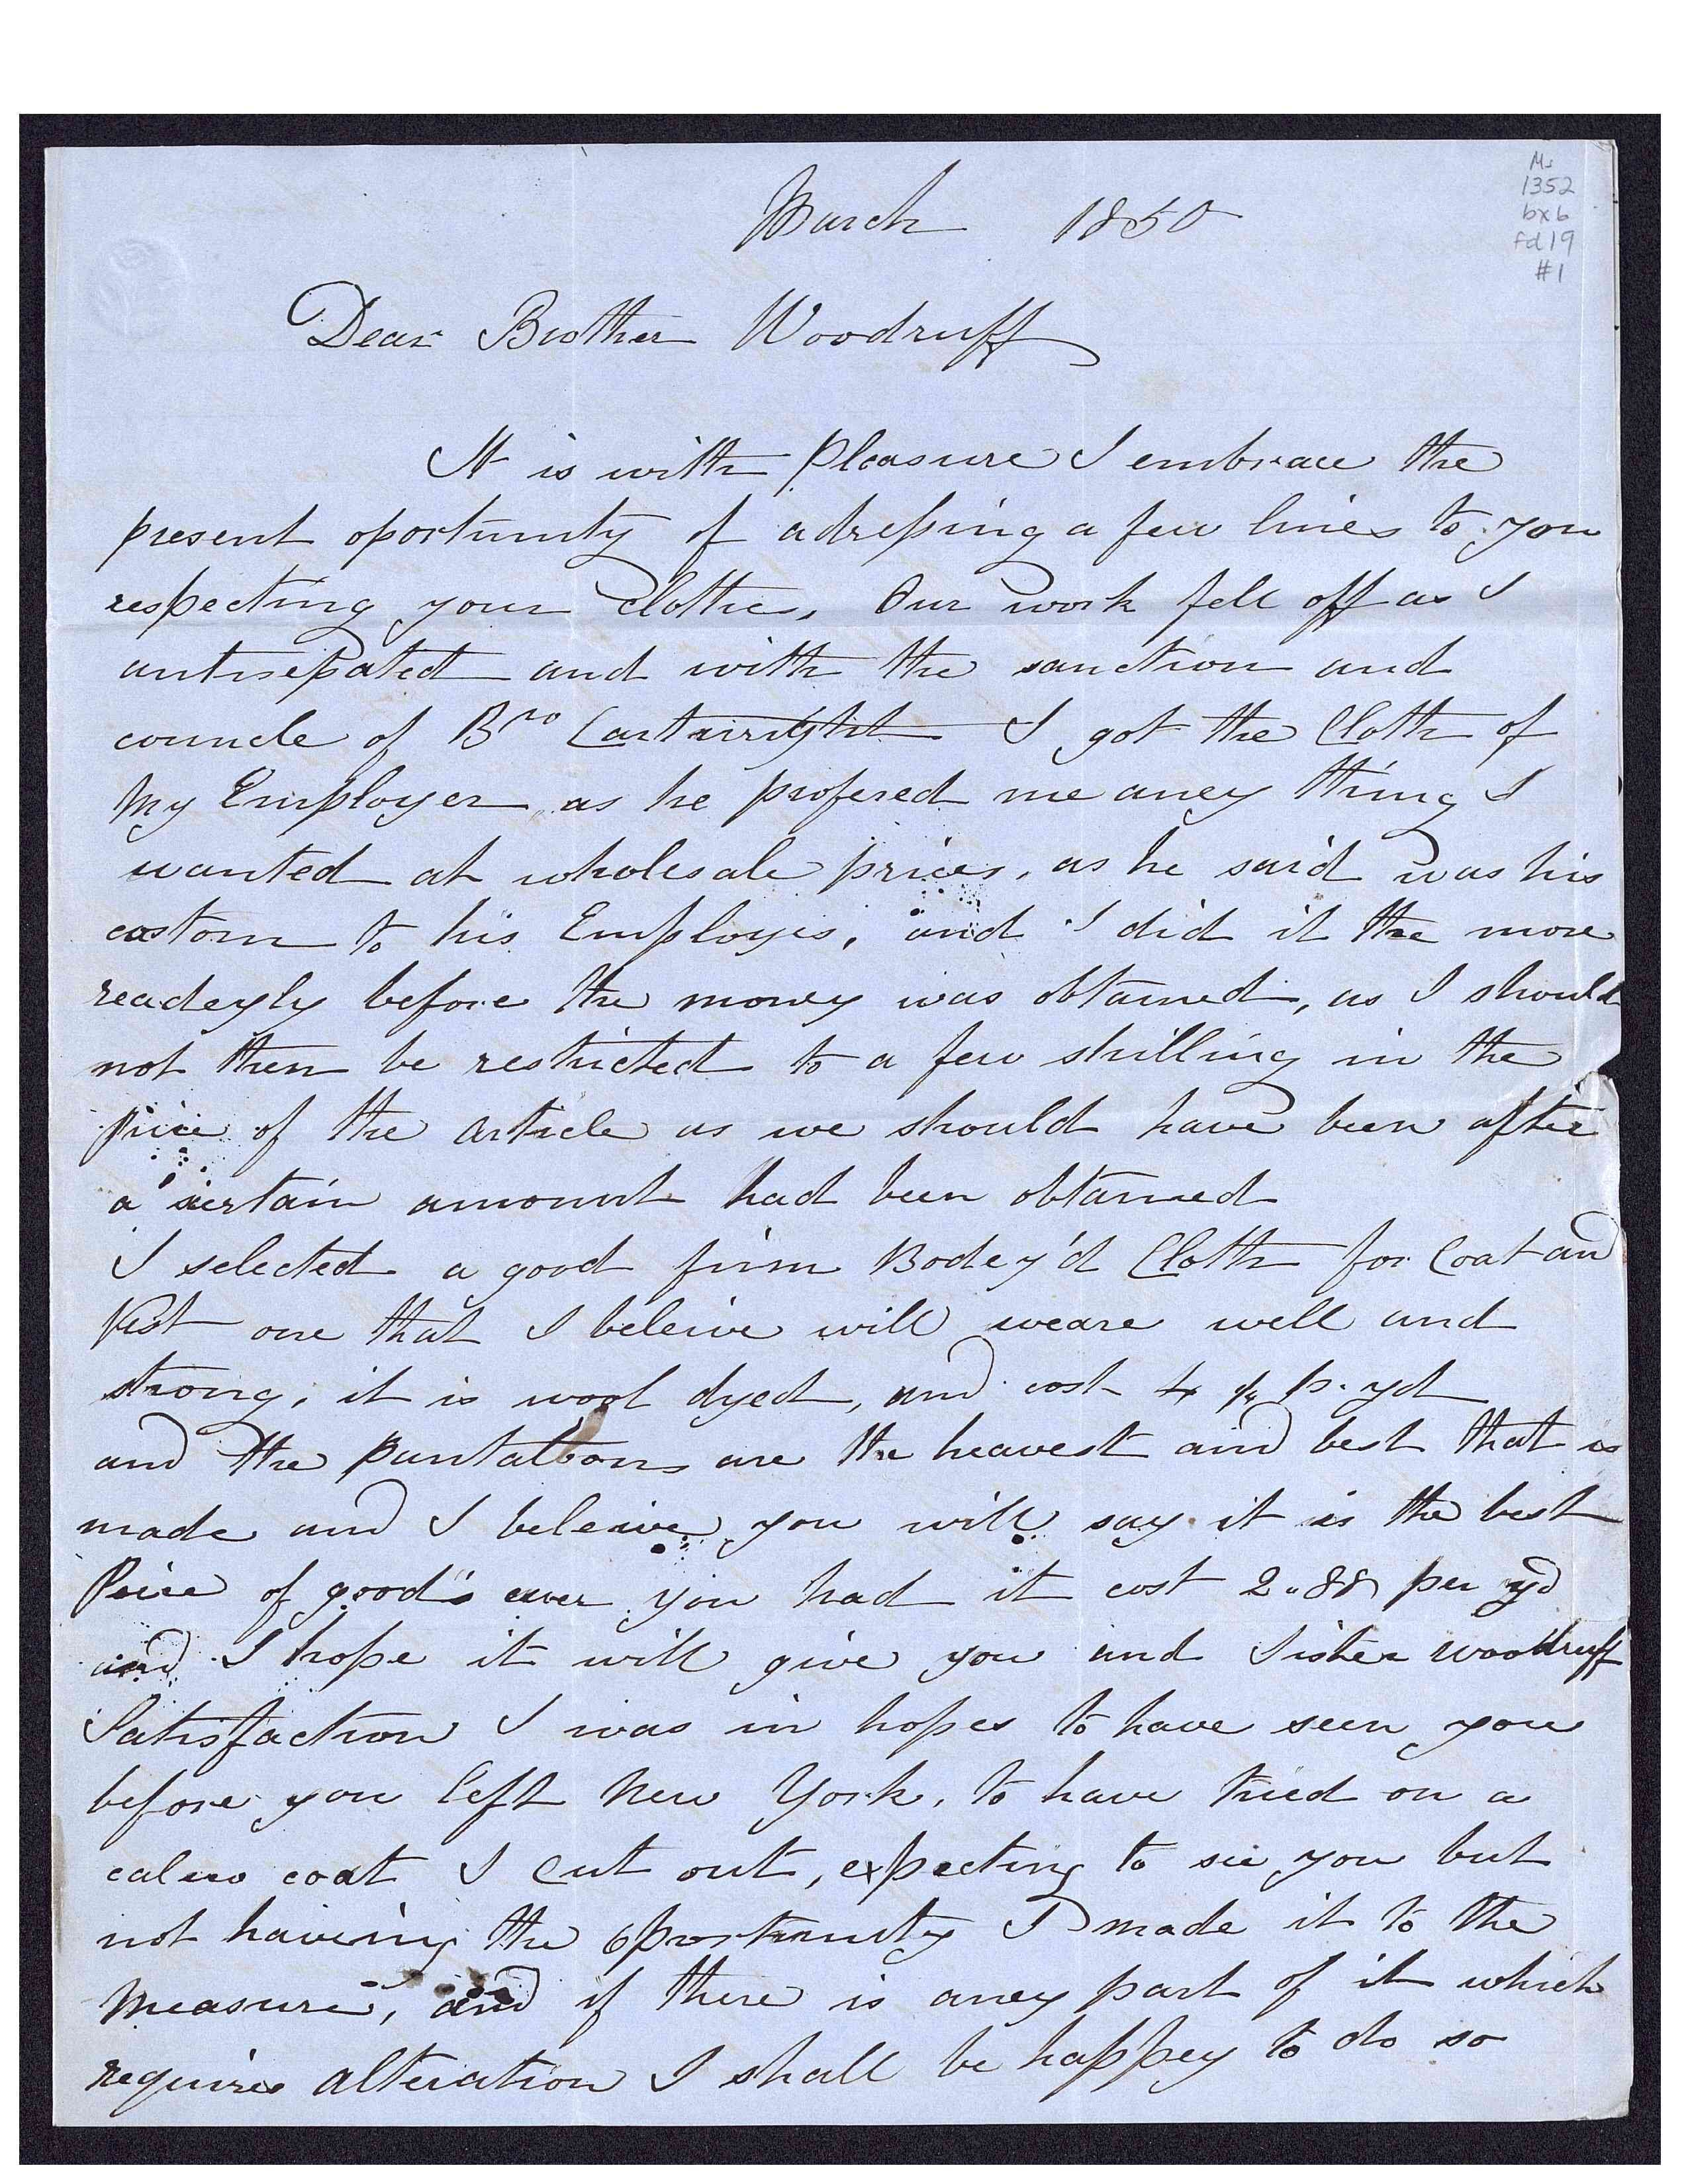 Ms
1352
bx 6
fd 19
#1
March 1850
Dear Brother Woodruff
It is with pleasure I embrace the
present oportunity of adressing a few lines to you
respecting your clothes, Our work fell off as I
antisepated and with the sanction and
councle of Bro Cartwright I got the Cloth of
My Employer, as he profered me aney thing I
wanted at wholesale prices, as he said was his
costom to his Employes, and I did it the more
readeyly before the money was obtained, as I should
not then be restricted to a few shilling in the
price of the article as we should have been after
a certain amount had been obtained
I selected a good firm Bodey'd Cloth for Coat and
Vest one that I beleive will weare well and
strong, it is wool dyed, and cost 4 p. yd
and the pantaloons are the heavest and best that is
made and I beleive you will say it is the best
Peice of good's ever you had it cost 2.88 per yd
and I hope it will give you and Sister woodruff
Satisfaction I was in hopes to have seen you
before you left New York, to have tried on a
calico coat I cut out, expecting to see you but
not haveing the oportunity I made it to the
Measure, and if there is aney part of it which
requires alteration I shall be happey to do so